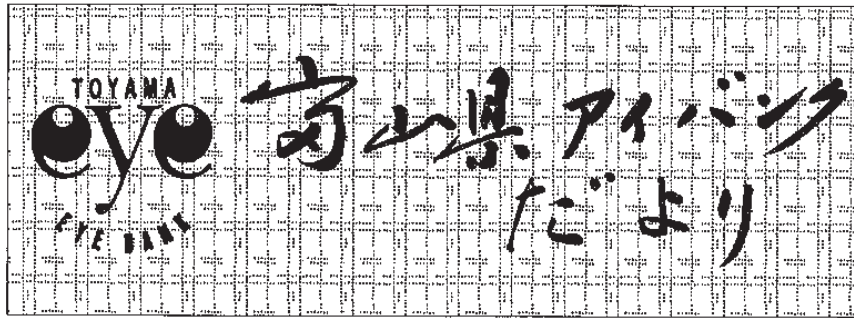 TOYAMA
eye
EYE BANK
富山県アイバンク
だより